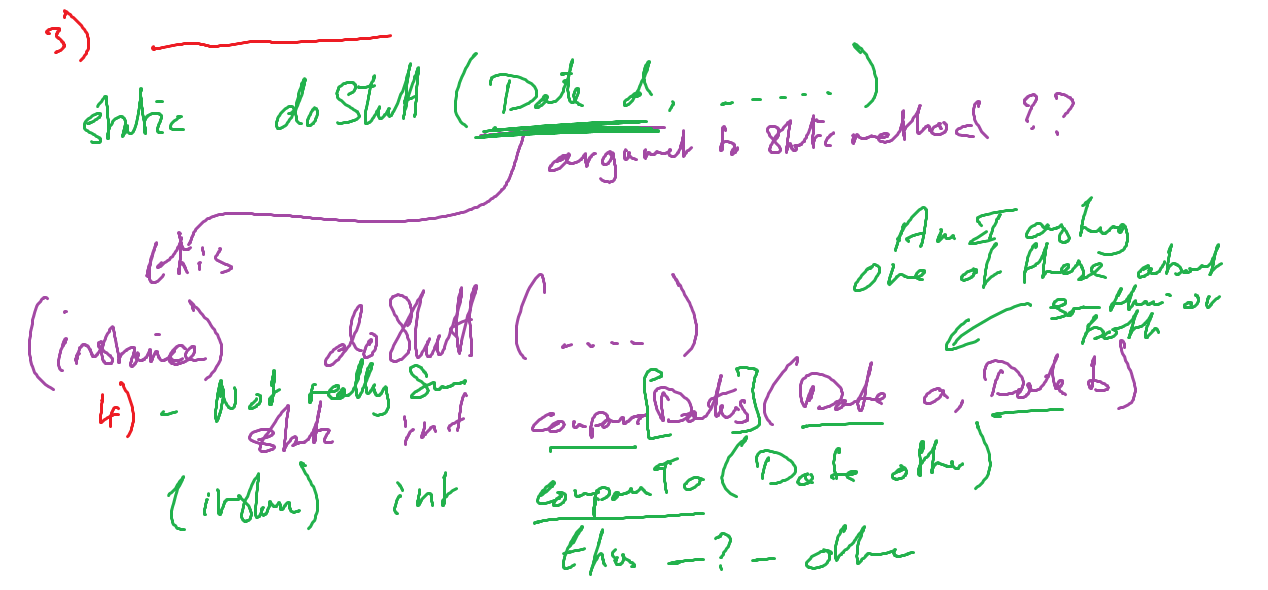 3)
static doStuff (Date d, ......)
argument to static method ??
this
Am I asking
one of these about
somthin or
both
(instance) doStuff (....)
4) - Not really Sure
static int compare[Dates](Date a, Date b)
(instan) int compareTo (Date other)
this - ? - other